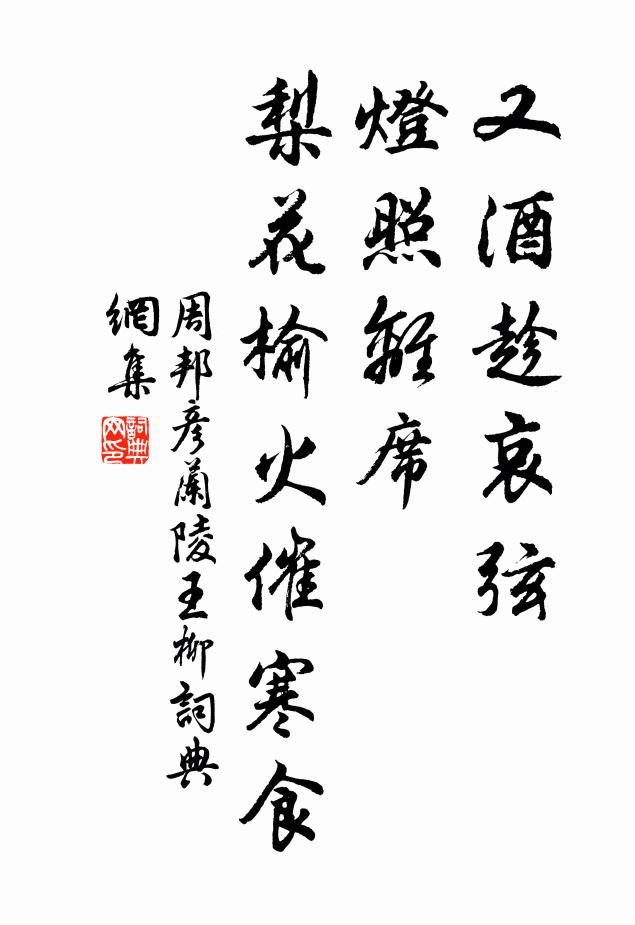 又酒趁哀弦
燈照離席
梨花榆火催寒食
周邦彦蘭陵王柳詞典
網集
詞典
网印